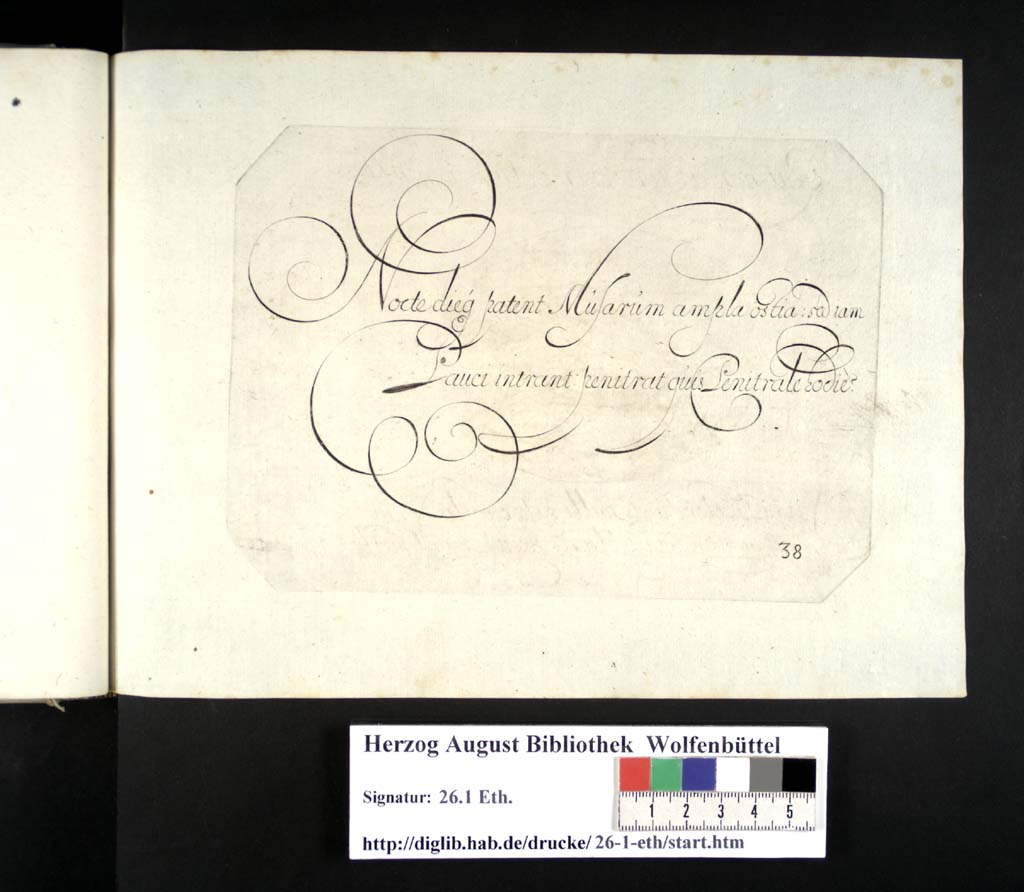 Nocte dieq́ patent Musarum ampla ostia: sed iam
Pauci intrant: penitrat quis Penitrale hodiè?
38
Herzog August Bibliothek Wolfenbüttel
Signatur: 26.1 Eth.
1 2 3 4 5
http://diglib.hab.de/drucke/ 26-1-eth/start.htm